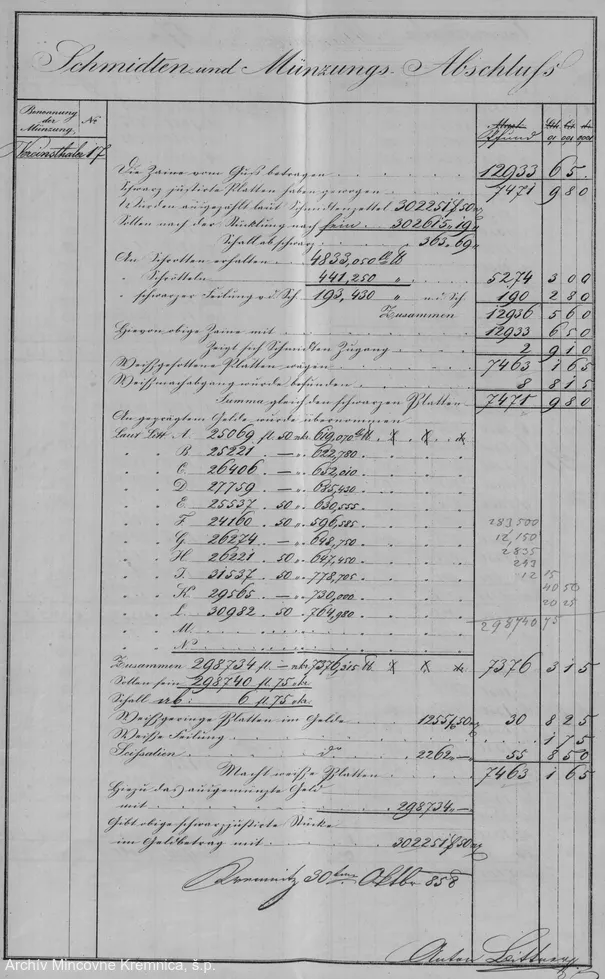 Schmidten und Münzungs-Abschluss
Benennung der Münzung N° Pfund 10 100 1000
Vereinsthaler 17
Die Zaine vom Guss betragen 12933 6 5 .
Schwarz justirte Platten haben gewogen 7471 9 8 0
Wurden ausgezählt laut Schmidtenzettel 302251 f 50
Sollen nach der Stücklung nach sein 302615 „ 19 „
Schall ab schwarz 363 „ 69 „
An Schrotten erhalten 4833,050 ℔
„ Schrötteln 441,250 „ 5274 3 0 0
„ schwarzer Feilung 193,430 „ 190 2 8 0
Zusammen 12936 5 6 0
Hievon obige Zaine mit 12933 6 5 0
Zeigt sich Schmidten Zugang 2 9 1 0
Weißgesottene Platten wägen 7463 1 6 5
Weißmachabgang wurde befunden 8 8 1 5
Summa gleich den schwarzen Platten 7471 9 8 0
An geprägtem Gelde wurde übernommen
Laut Litt A. 25069 fl. 50 nkr. 619,070 ℔
„ „ B 25221 . — „ 622,780
„ „ C 26406 . — „ 652,010
„ „ D 27759 . — „ 685,430
„ „ E 25537 . 50 „ 630,555
„ „ F 24160 . 50 „ 596,585 283500
„ „ G 26274 . — „ 648,750 12,150
„ „ H 26221 . 50 „ 647,450 2835
„ „ I 31537 . 50 „ 778,705 243
12 15
„ „ K 29565 . — „ 730,000 40 50
„ „ L 30982 . 50 „ 764,980 20 25
„ „ M 298740 75
„ „ N
Zusammen 298734 fl. — nkr. 7376,315 ℔ 7376 3 1 5
Sollen sein 298740 fl. 75 nkr
Schall ab: 6 fl. 75 nkr
Weißgeringe Platten im Gelde 1255 f 50 30 8 2 5
Weiße Feilung . 1 7 5
Scissalien do 2262 „ — „ 55 8 5 0
Macht weiße Platten 7463 1 6 5
Hiezu das ausgemünzte Geld
mit 298734 „ —
Gibt obige schwarzjustirte Stücke
im Geldbetrag mit 302251 f 50
Kremnitz 30ten Oktbr 858
Anton
Archív Mincovne Kremnica, š.p.